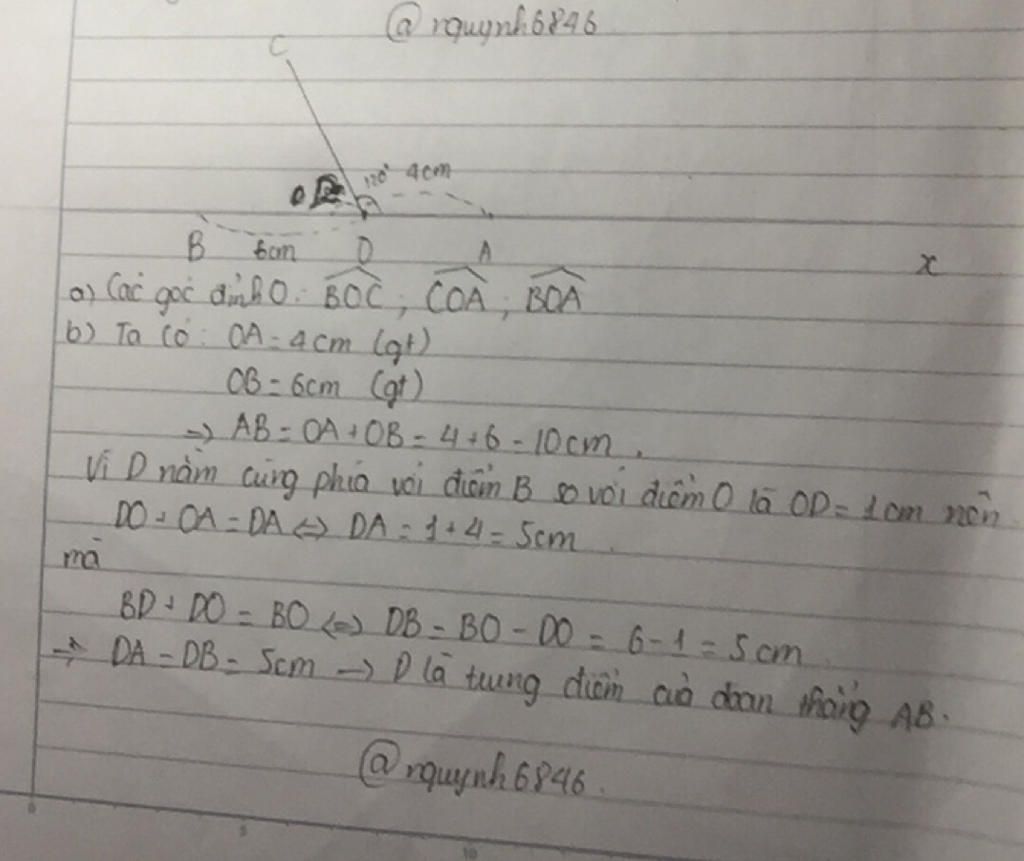 @nquynh6846
C
120° 4cm
B 6cm O A x
a) Các góc đỉnh O: BOC ; COA ; BOA
b) Ta có: OA = 4cm (gt)
OB = 6cm (gt)
=> AB = OA + OB = 4 + 6 = 10cm.
Vì D nằm cùng phía với điểm B so với điểm O là OD = 1cm nên
DO + OA = DA <=> DA = 1 + 4 = 5cm.
mà
BD + DO = BO <=> DB = BO - DO = 6 - 1 = 5cm
=> DA = DB = 5cm -> D là trung điểm của đoạn thẳng AB.
@nquynh6846.
0 5 10